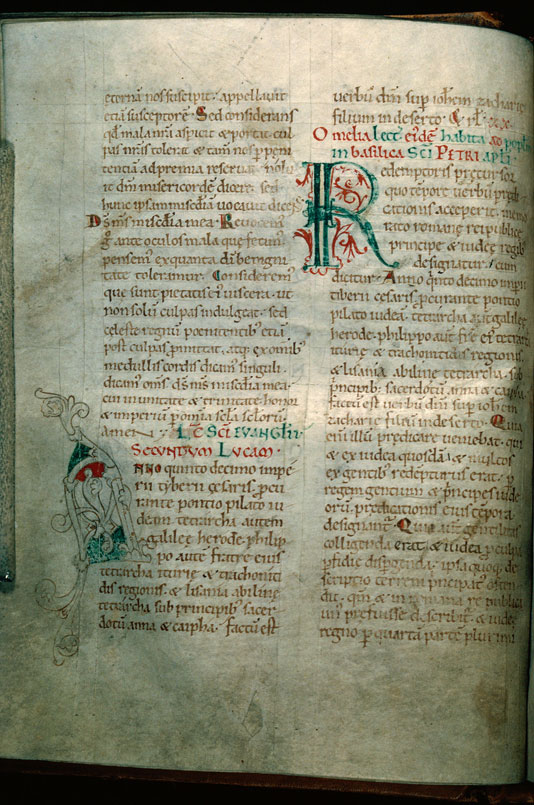 eterna nos suscipit, appellavit
etiā susceptorē. Sed considerans
qđ mala nr̄a aspicit & portat. cul
pas nr̄as tolerat & tam̄ nos p̱ peni
tentiā ad premia reservat. noluit
ire dn̄m misericordē dicere. sed
hunc ipsam misc̄diā vocavit dicens
Ds̄ ms̄ misc̄dia mea. Revocem
g ante oculos mala que fecim
pensem ex quanta dī benigni
tate toleramur. Considerem
que sunt pietatis ei viscera. ut
non solū culpas indulgeat. sed
celeste regnū poenitentib etiā
post culpas p̱mittat. atq; ex omib
medullis cordis dicam singuli.
dicam om̄s ds̄ ms̄ misc̄dia mea.
in unitate & trinitate honor
& imperiū p̱ om̄ia scl̄a sclorū
amen. Lc̄ Sc̄i Evanglii
Secundum Lucam
Anno quinto decimo impe
rii tyberii cesaris. p̱cu
rante pontio pilato iu
deam. tetrarcha autem
galileę herode. philip
po autē fratre eius
tetrarcha iturię & trachoniti
dis regionis. & lisania abiline
tetrarcha. sub principib sacer
dotū anna & caipha. Factū est
verbū dn̄i sup̱ iohem zacharię
filium in deserto. & rl̄.
Omelia lect eiđe habita ad popłm
in basilica Sc̄i Petri apłi
Redemptoris precursor
quo tēpore verbū predi
cationis acceperit. memo
rato romanę reipublicę
principe & iudeę regib
designatur. cum
dicitur. Anno q̇nto decimo imp̱ii
tiberii cesaris. p̱curante pontio
pilato iudeā. tetrarcha aut̄ galileę
herode. philippo aut̄ frē ei tetrarcha
iturię & trachonitidis regionis.
& lisania abiline tetrarcha. sub
p̱ncipib sacerdotū anna & caipha.
factū est verbū dn̄i sup̱ iohem
zacharię filium in deserto. Quia
eni illum predicare veniebat. qui
& ex iudea quosdā & multos
ex gentib redempturus erat. p̱
regem gentium & p̱ncipes iude
orū. predicationis eius tēpora
designant. Quia aut̄ gentilitas
colligenda erat. & iudea p̱ culpa
p̱fidię disp̱genda. ipsa quoq; de
scriptio terreni p̱ncipat osten
dit. qm̄ & in romana re publica
un p̱efuisse describit. & iudeę
regno p̱ quartā partē plurimi